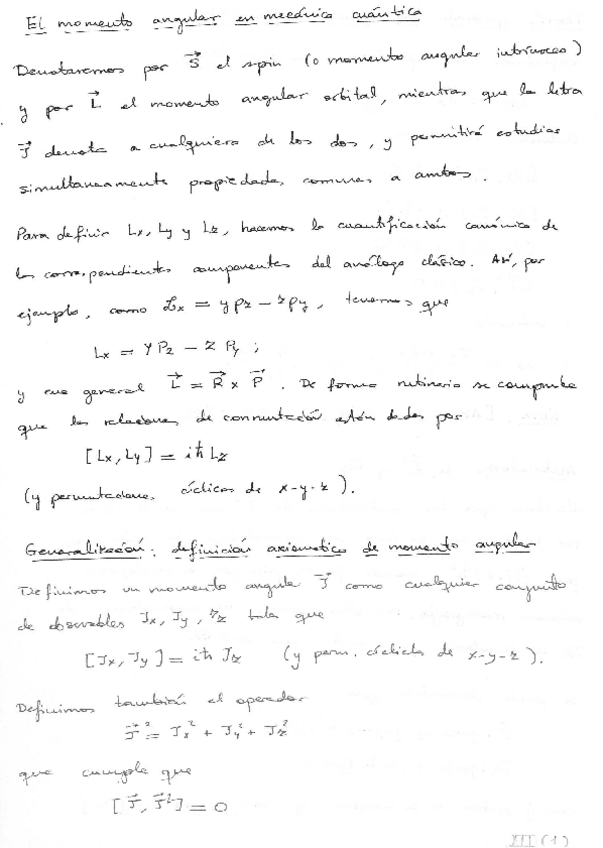 El momento angular en mecánica cuántica
Denotaremos por S⃗ el spin (o momento angular intrínseco)
y por L⃗ el momento angular orbital, mientras que la letra
J⃗ denota a cualquiera de los dos, y permitirá estudiar
simultaneamente propiedades comunes a ambos.
Para definir Lx, Ly y Lz, hacemos la cuantificación canónica de
las correspondientes componentes del análogo clásico. Así, por
ejemplo, como ℒx = y pz − z py, tenemos que
Lx = Y Pz − Z Py ;
y en general L⃗ = R⃗ x P⃗. De forma rutinaria se comprueba
que las relaciones de conmutación están dadas por
[Lx, Ly] = iħ Lz
(y permutaciones cíclicas de x-y-z).
Generalización: definición axiomática de momento angular
Definimos un momento angular J⃗ como cualquier conjunto
de observables Jx, Jy, Jz tales que
[Jx, Jy] = iħ Jz (y perm. cíclicas de x-y-z).
Definimos también el operador
J⃗² = Jx² + Jy² + Jz²
que cumple que
[J⃗, J⃗²] = 0
XII (1)